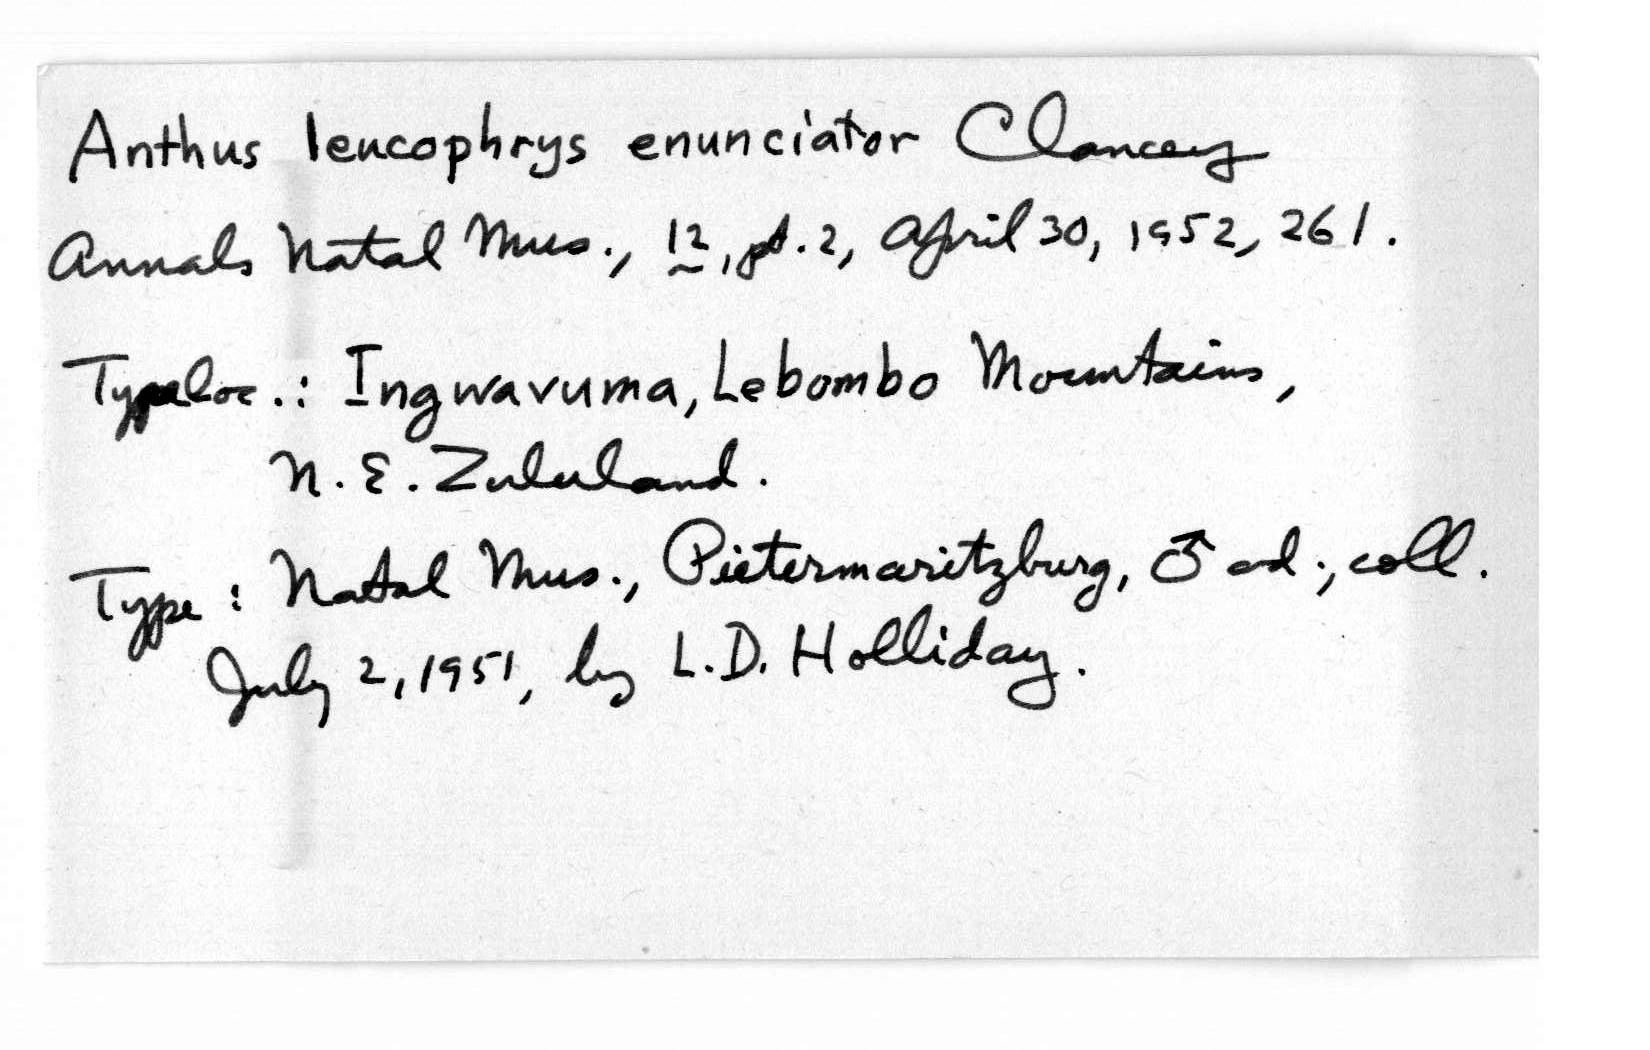 Anthus leucophrys enunciator Clancey
Annals Natal Mus., 12, pt. 2, April 30, 1952, 261.
Type loc.: Ingwavuma, Lebombo Mountains,
N. E. Zululand.
Type: Natal Mus., Pietermaritzburg, ♂ ad., coll.
July 2, 1951, by L. D. Holliday.